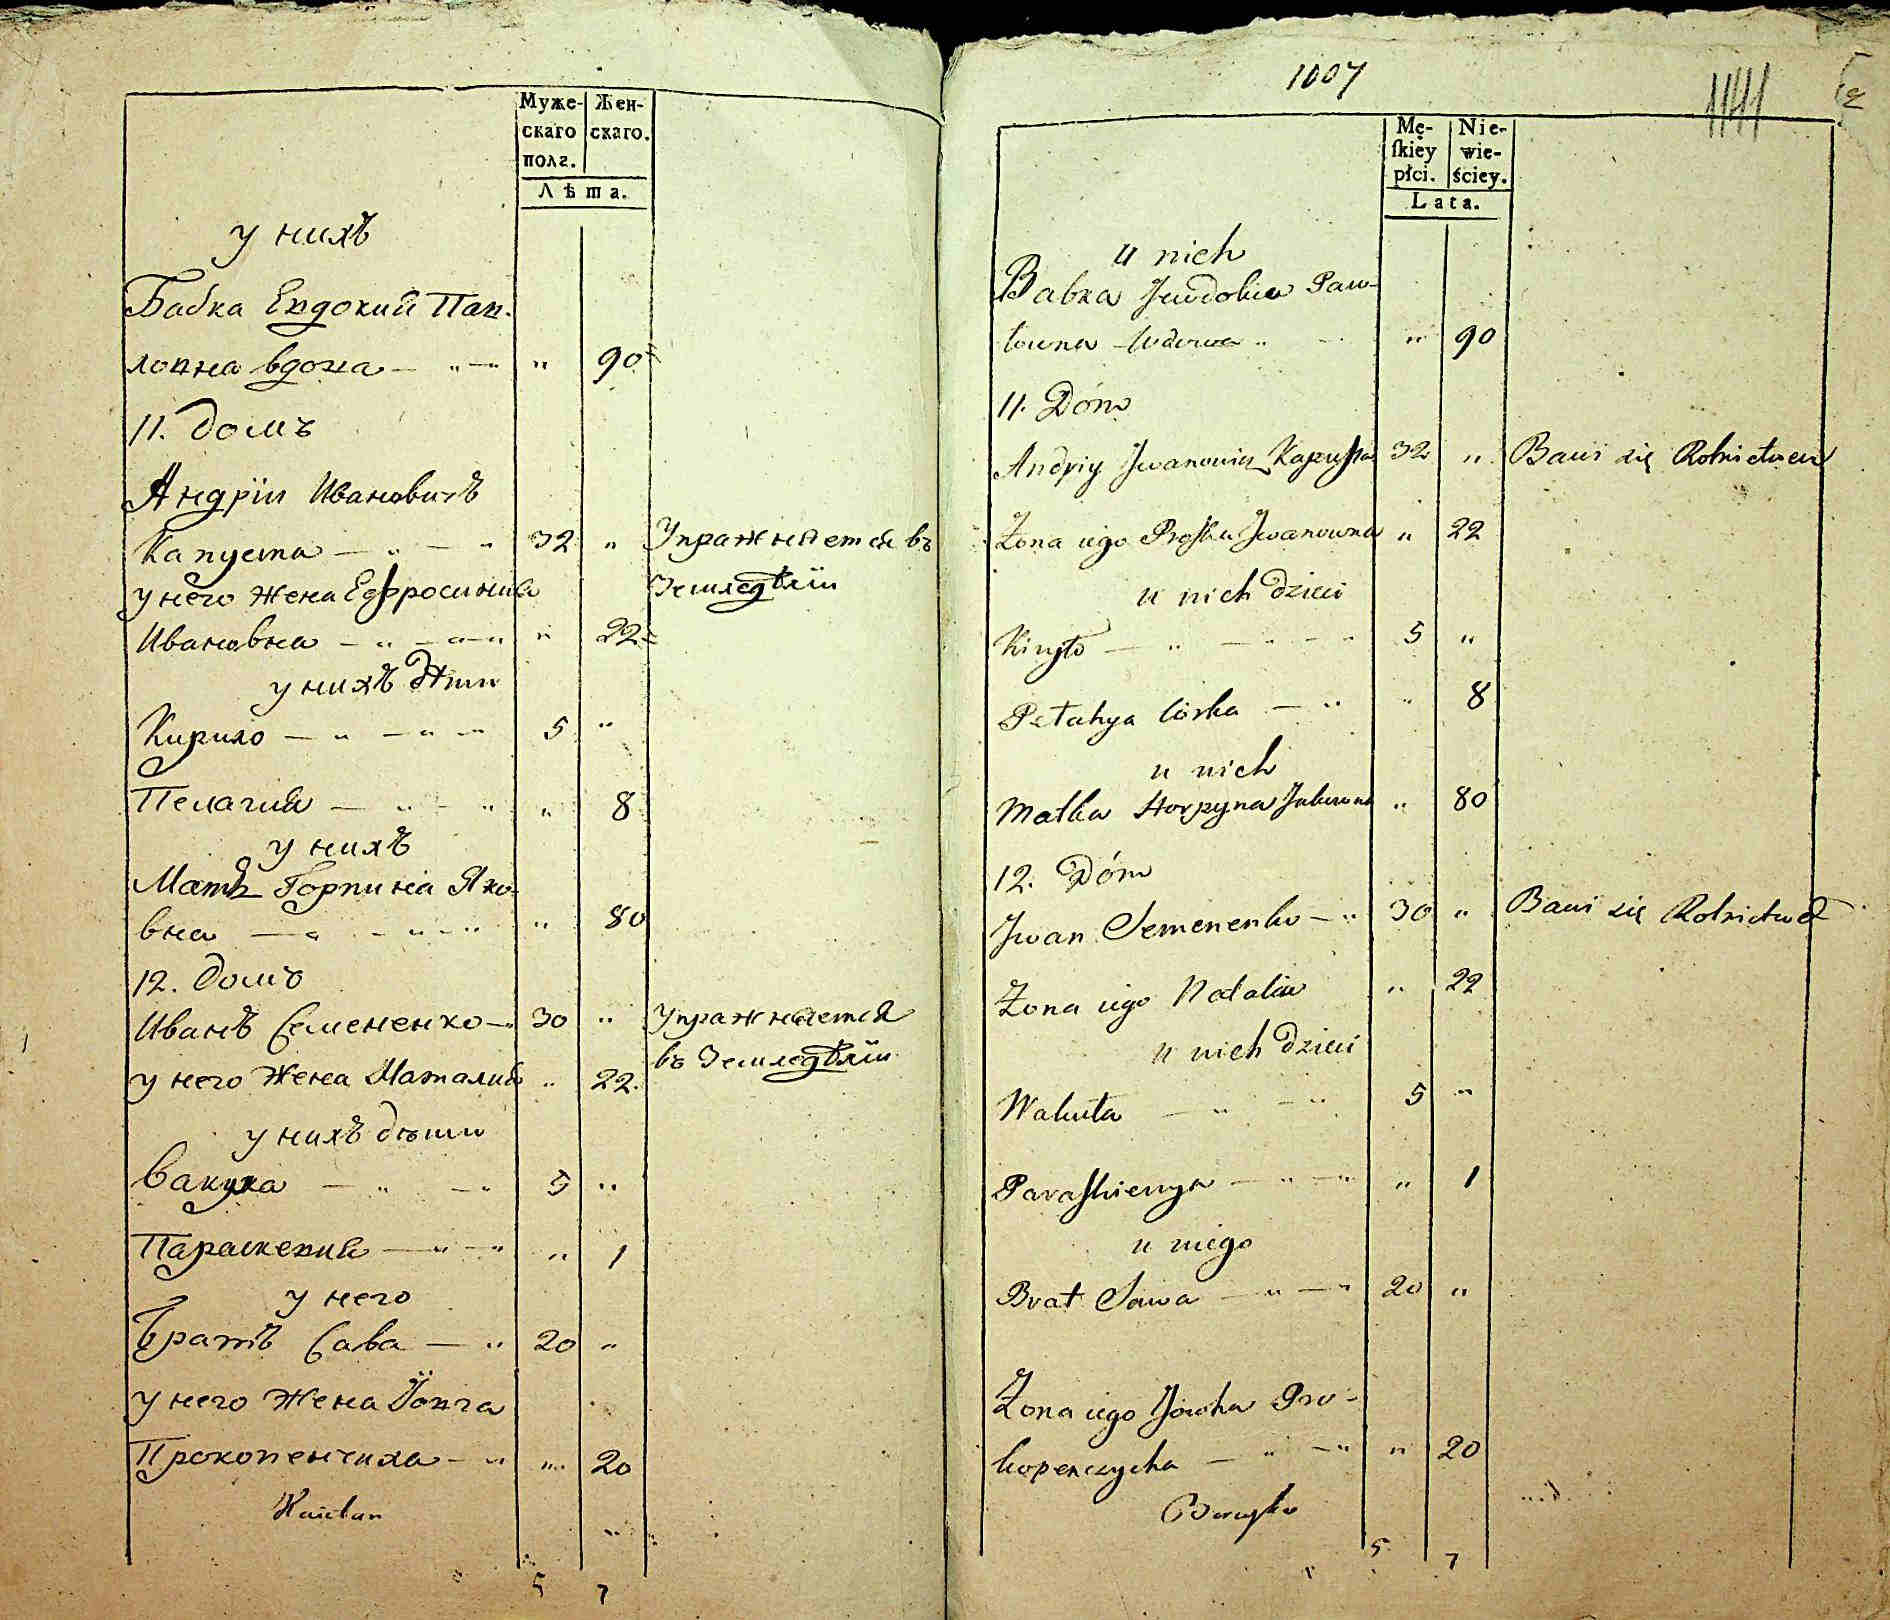 Муже-
скаго
пола.
Жен-
скаго.
Лѣта.
у нихъ
Бабка Евдокия Пав-
ловна вдова — " — " " 90
11. Домъ
Андрій Ивановичъ
Капуста — " — " 32 " Упражняется въ
Земледѣліи
у него жена Ефросиния
Ивановна — " — " — " " 22
у нихъ дѣти
Кирило — " — " — " 5 "
Пелагия — " — " " 8
у нихъ
Мать Горпина Яко-
вна — " — " — " " 80
12. Домъ
Иванъ Семененко — " 30 " Упражняется
въ Земледѣліи
у него жена Наталия " 22.
у нихъ дѣти
Вакула — " — " 5 "
Параскевия — " — " " 1
у него
Братъ Сава — " 20 "
у него жена Йовга
Прокопенчиха — " " 20
5 7
1007
Mę-
ſkiey
płci.
Nie-
wie-
ściey.
Lata.
u nich
Babka Jewdokia Paw-
łowna wdowa " — " 90
11. Dóm
Andriy Jwanowicz Kapuſta 32 " Bawi się Rolnictwem
Żona iego Proſka Jwanowna " 22
u nich dzieci
Kiryło — " — " — " 5 "
Pełahya córka — " " 8
u nich
Matka Horpyna Jakowna " 80
12. Dóm
Jwan Semenenko — " 30 " Bawi się Rolnictwe
Żona iego Natalia " 22
u nich dzieci
Wakuła — " — " 5 "
Paraſkiewya — " — " " 1
u niego
Brat Sawa — " — " 20 "
Żona iego Jowha Pro-
kopenczycha — " — " " 20
5 7